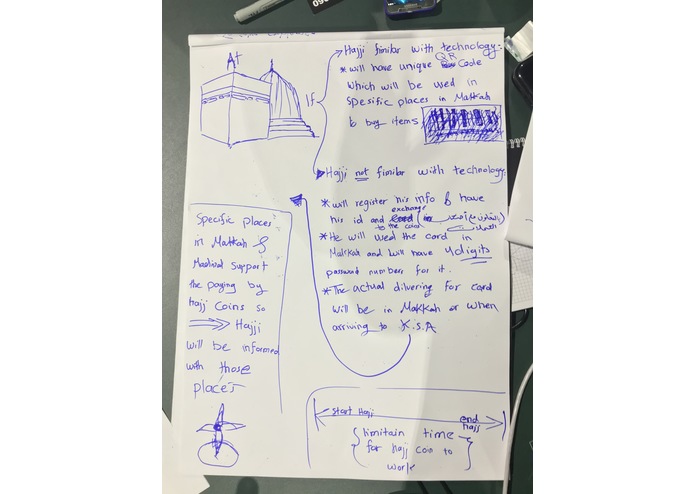 At
If
Hajji fimilar with technology:
* will have unique QR Code
which will be used in
spesific places in Makkah
to buy items
Hajji not fimilar with technology:
* will register his info & have
his id and exchange
to the card
* He will used the card in
Makkah and will have 4 digits
passwd numbers for it.
* The actual dilvering for card
will be in Makkah or when
arriving to K.S.A
Specific places
in Makkah &
Madinah support
the paying by
hajj coins so
⟹ Hajji
will be informed
with those
places
start Hajj
end
hajj
limitain time
for hajj coin to
work